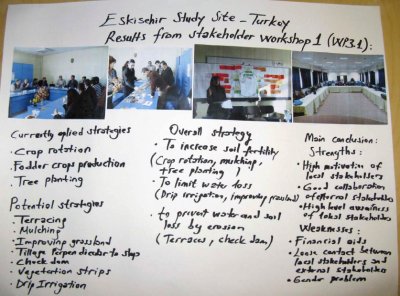 Eskisehir Study Site - Turkey
Results from stakeholder workshop 1 (WP3.1):
Currently aplied strategies
· Crop rotation
· Fodder crops production
· Tree planting
Potential strategies
· Terracing
· Mulching
· Improving grassland
· Tillage Perpendicular to slops
· Check dam
· Vegetation strips
· Drip Irrigation
Overall strategy
· To increase soil fertility
(Crop rotation, mulching,
tree planting)
· To limit water loss
(Drip irrigation, improving grassland)
· to prevent water and soil
loss by erosion
(Terraces, check dam)
Main conclusion:
Strengths:
· High motivation of
local stakeholders
· Good collaboration
of external stakeholders
· High level awareness
of lokal stakeholders
Weaknesses:
· Financial aids
· Loose contact between
local stakeholders and
external stakeholders
· Gender problem